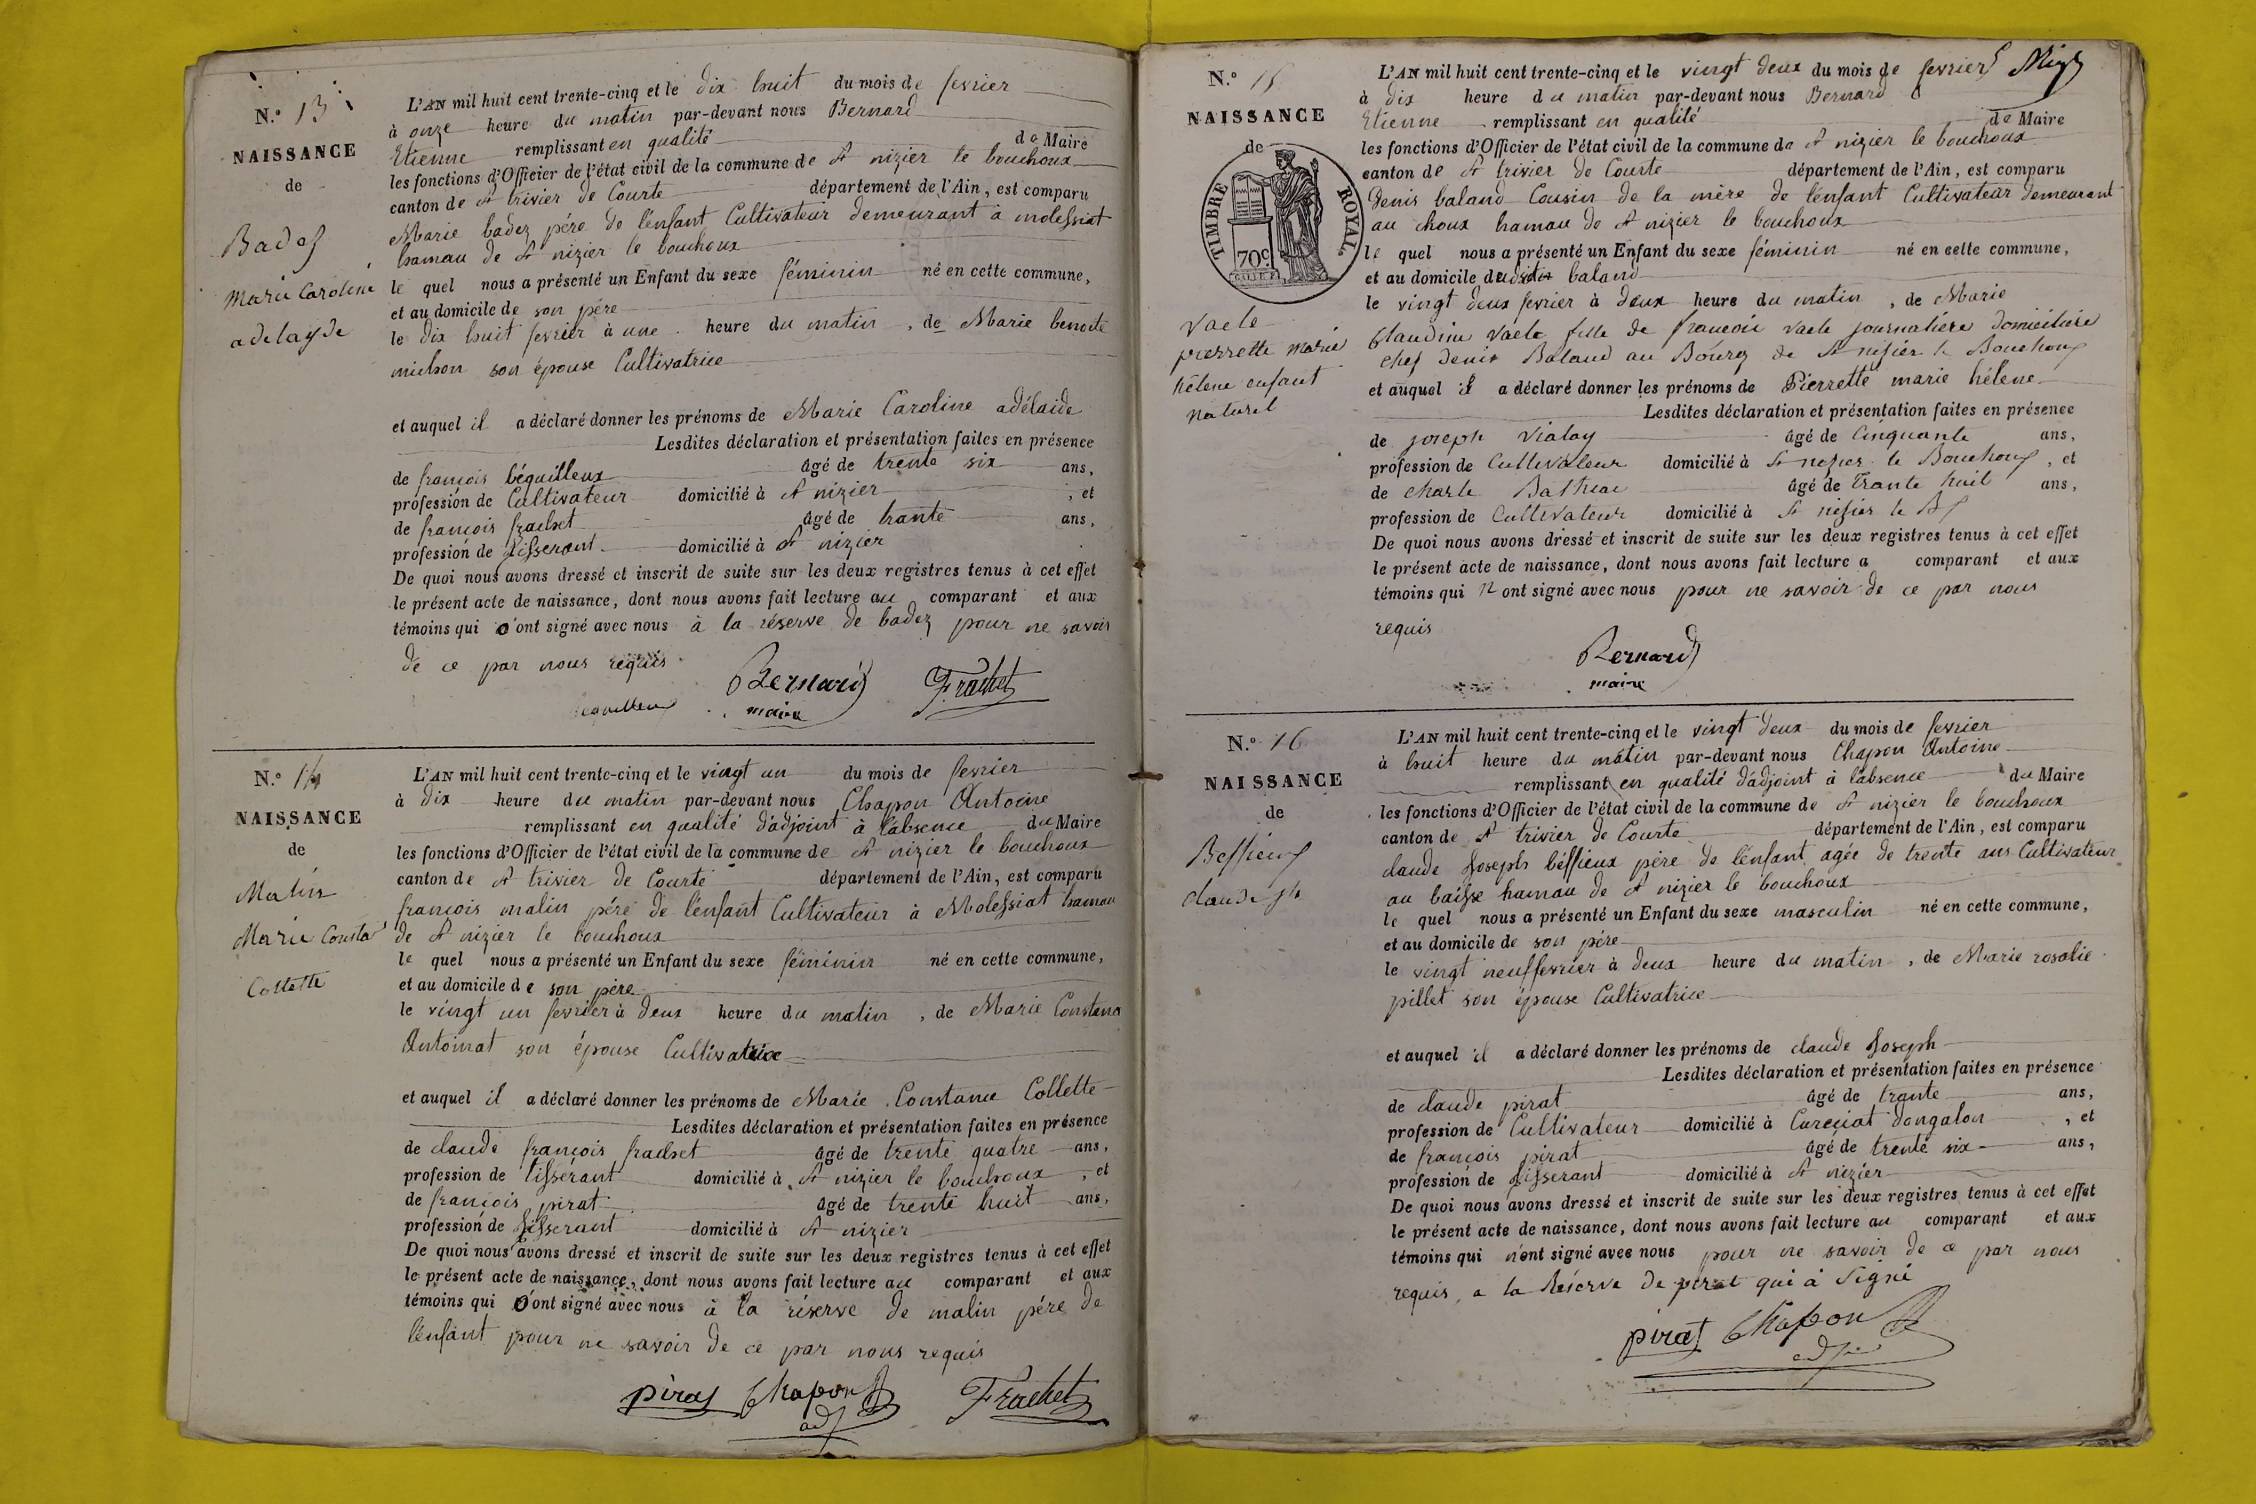 N.° 13
NAISSANCE
de
Badez
Marie Caroline
adelayde
L'AN mil huit cent trente-cinq et le dix huit du mois de fevrier
à onze heure du matin par-devant nous Bernard
Etienne remplissant en qualité de Maire
les fonctions d'Officier de l'état civil de la commune de St nizier le bouchoux
canton de St trivier de Courte département de l'Ain, est comparu
Marie badez pére de l'énfant Cultivateur demeurant à molessiat
hamau de St nizier le bouchoux
le quel nous a présenté un Enfant du sexe féminin né en cette commune,
et au domicile de son pére
le dix huit fevrier à une heure du matin, de Marie benoite
michon son épouse Cultivatrice
et auquel il a déclaré donner les prénoms de Marie Caroline adélaide
Lesdites déclaration et présentation faites en présence
de françois béquilleux âgé de trente six ans,
profession de Cultivateur domicilié à St nizier, et
de françois frachet âgé de trante ans,
profession de tisserant domicilié à St nizier
De quoi nous avons dressé et inscrit de suite sur les deux registres tenus à cet effet
le présent acte de naissance, dont nous avons fait lecture au comparant et aux
témoins qui ont signé avec nous à la réserve de badez pour ne savoir
de ce par nous requis
Bernard Frachet
maire
N.° 14
NAISSANCE
de
Malin
Marie Consta
Collette
L'AN mil huit cent trente-cinq et le vingt un du mois de fevrier
à dix heure du matin par-devant nous Chapon Antoine
remplissant en qualité d'adjoint à l'absence du Maire
les fonctions d'Officier de l'état civil de la commune de St nizier le bouchoux
canton de St trivier de Courte département de l'Ain, est comparu
françois malin pére de l'énfant Cultivateur à Molessiat hamau
de St nizier le bouchoux
le quel nous a présenté un Enfant du sexe féminin né en cette commune,
et au domicile de son pére
le vingt un fevrier à deux heure du matin, de Marie Constana
Antoinat son épouse Cultivatrice
et auquel il a déclaré donner les prénoms de Marie Constance Collette
Lesdites déclaration et présentation faites en présence
de claude françois frachet âgé de trente quatre ans,
profession de tisserant domicilié à St nizier le bouchoux, et
de françois pirat âgé de trente huit ans,
profession de tisserant domicilié à St nizier
De quoi nous avons dressé et inscrit de suite sur les deux registres tenus à cet effet
le présent acte de naissance, dont nous avons fait lecture au comparant et aux
témoins qui ont signé avec nous à la réserve de malin pére de
l'énfant pour ne savoir de ce par nous requis
pirat Chapon Frachet
adj
N.° 15
NAISSANCE
de
TIMBRE ROYAL
70c
Vaele
pierrette marie
hélene enfant
naturel
L'AN mil huit cent trente-cinq et le vingt deux du mois de fevrier
à dix heure du matin par-devant nous Bernard
Etienne remplissant en qualité de Maire
les fonctions d'Officier de l'état civil de la commune de St nizier le bouchoux
canton de St trivier de Courte département de l'Ain, est comparu
Denis baland Cousin de la mère de l'énfant Cultivateur demeurant
au choux hamau de St nizier le bouchoux
le quel nous a présenté un Enfant du sexe féminin né en cette commune,
et au domicile dudit baland
le vingt deux fevrier à deux heure du matin, de Marie
Claudine Vaele fille de françois vaele journalière domicilière
chez denis Baland au Bourg de St nisier le Bouchoux
et auquel il a déclaré donner les prénoms de Pierrette marie hélene
Lesdites déclaration et présentation faites en présence
de joseph Vialay âgé de Cinquante ans,
profession de Cultivateur domicilié à St nisier le Bouchoux, et
de charle âgé de trante huit ans,
profession de Cultivateur domicilié à St nisier le B
De quoi nous avons dressé et inscrit de suite sur les deux registres tenus à cet effet
le présent acte de naissance, dont nous avons fait lecture a comparant et aux
témoins qui n ont signé avec nous pour ne savoir de ce par nous
requis
Bernard
maire
N.° 16
NAISSANCE
de
Beffieux
claude jh
L'AN mil huit cent trente-cinq et le vingt deux du mois de fevrier
à huit heure du matin par-devant nous Chapon Antoine
remplissant en qualité d'adjoint à l'absence du Maire
les fonctions d'Officier de l'état civil de la commune de St nizier le bouchoux
canton de St trivier de Courte département de l'Ain, est comparu
claude Joseph béffieux pére de l'énfant agée de trente ans Cultivateur
au baisse hamau de St nizier le bouchoux
le quel nous a présenté un Enfant du sexe masculin né en cette commune,
et au domicile de son pére
le vingt neuf fevrier à deux heure du matin, de Marie rosalie
pillet son épouse Cultivatrice
et auquel il a déclaré donner les prénoms de claude Joseph
Lesdites déclaration et présentation faites en présence
de claude pirat âgé de trante ans,
profession de Cultivateur domicilié à Curciat dongalon, et
de françois pirat âgé de trente six ans,
profession de tisserant domicilié à St nizier
De quoi nous avons dressé et inscrit de suite sur les deux registres tenus à cet effet
le présent acte de naissance, dont nous avons fait lecture au comparant et aux
témoins qui n'ont signé avec nous pour ne savoir de ce par nous
requis, a la Réserve de pirat qui a Signé
pirat Chapon
adj